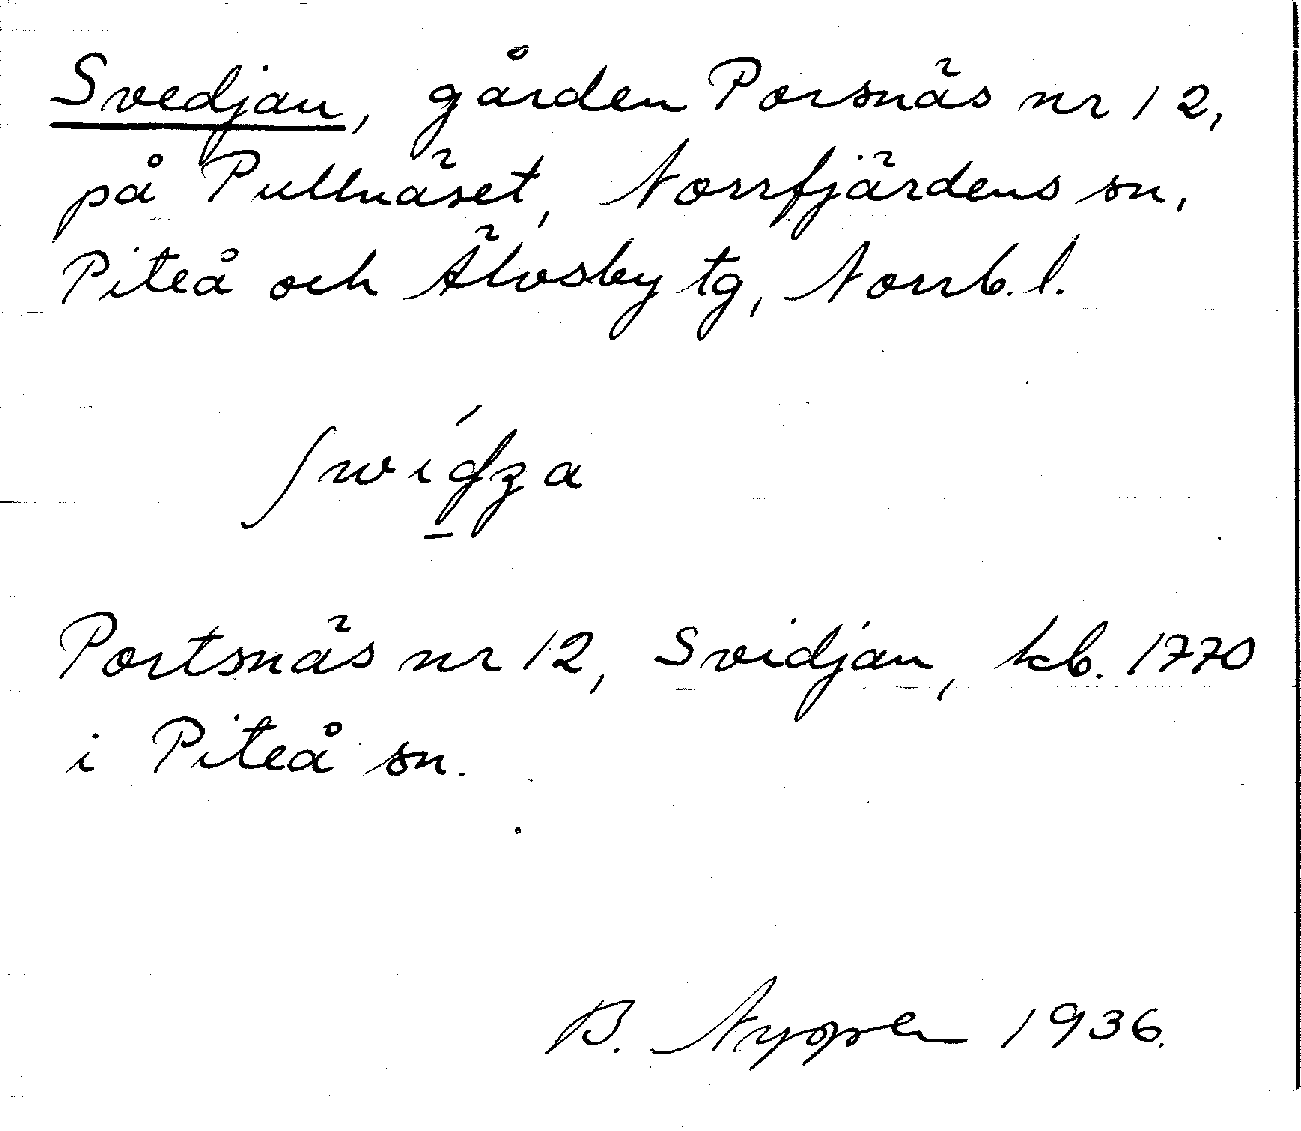 Svedjan, gården Porsnäs nr 12,
på Pullnäset, Norrfjärdens sn,
Piteå och Älvsby tg, Norrb. l.
Portsnäs nr 12, Svidjan, kb. 1770
i Piteå sn.
B. 1936.